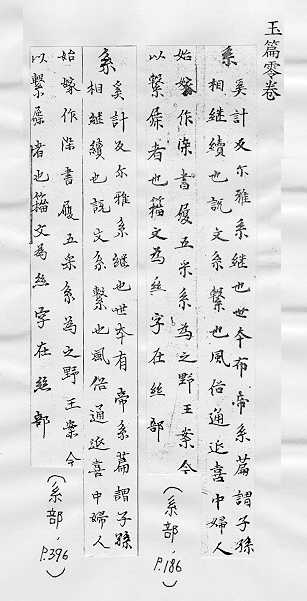 玉篇零卷
系 奚計反尔雅系継也世本布帝系篇謂子孫
相継續也說文系繫也風俗通延喜中婦人
始嫁作柒書履五采系為之野王案今
以繫屧者也籀文為絲字在絲部（系部，P.186）
系 奚計反尔雅系継也世本有帝系篇謂子孫
相継續也說文系繫也風俗通延喜中婦人
始嫁作柒書履五采系為之野王案今
以繫屧者也籀文為絲字在絲部（系部，P.396）